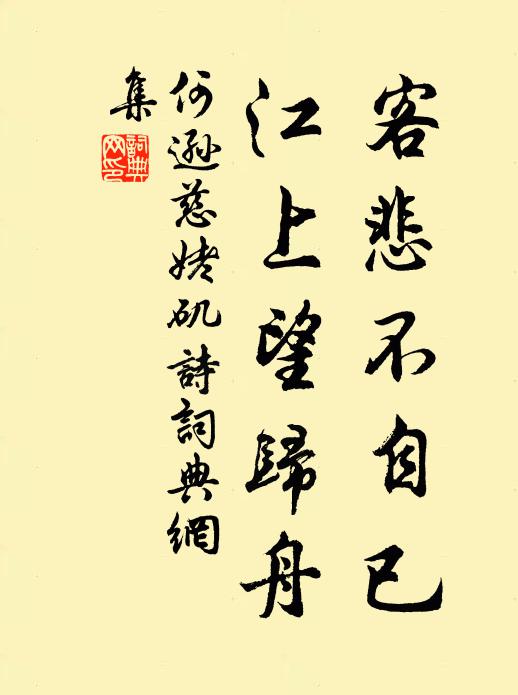 客悲不自已
江上望歸舟
何遜慈姥矶詩詞典網
集
詞典
网印